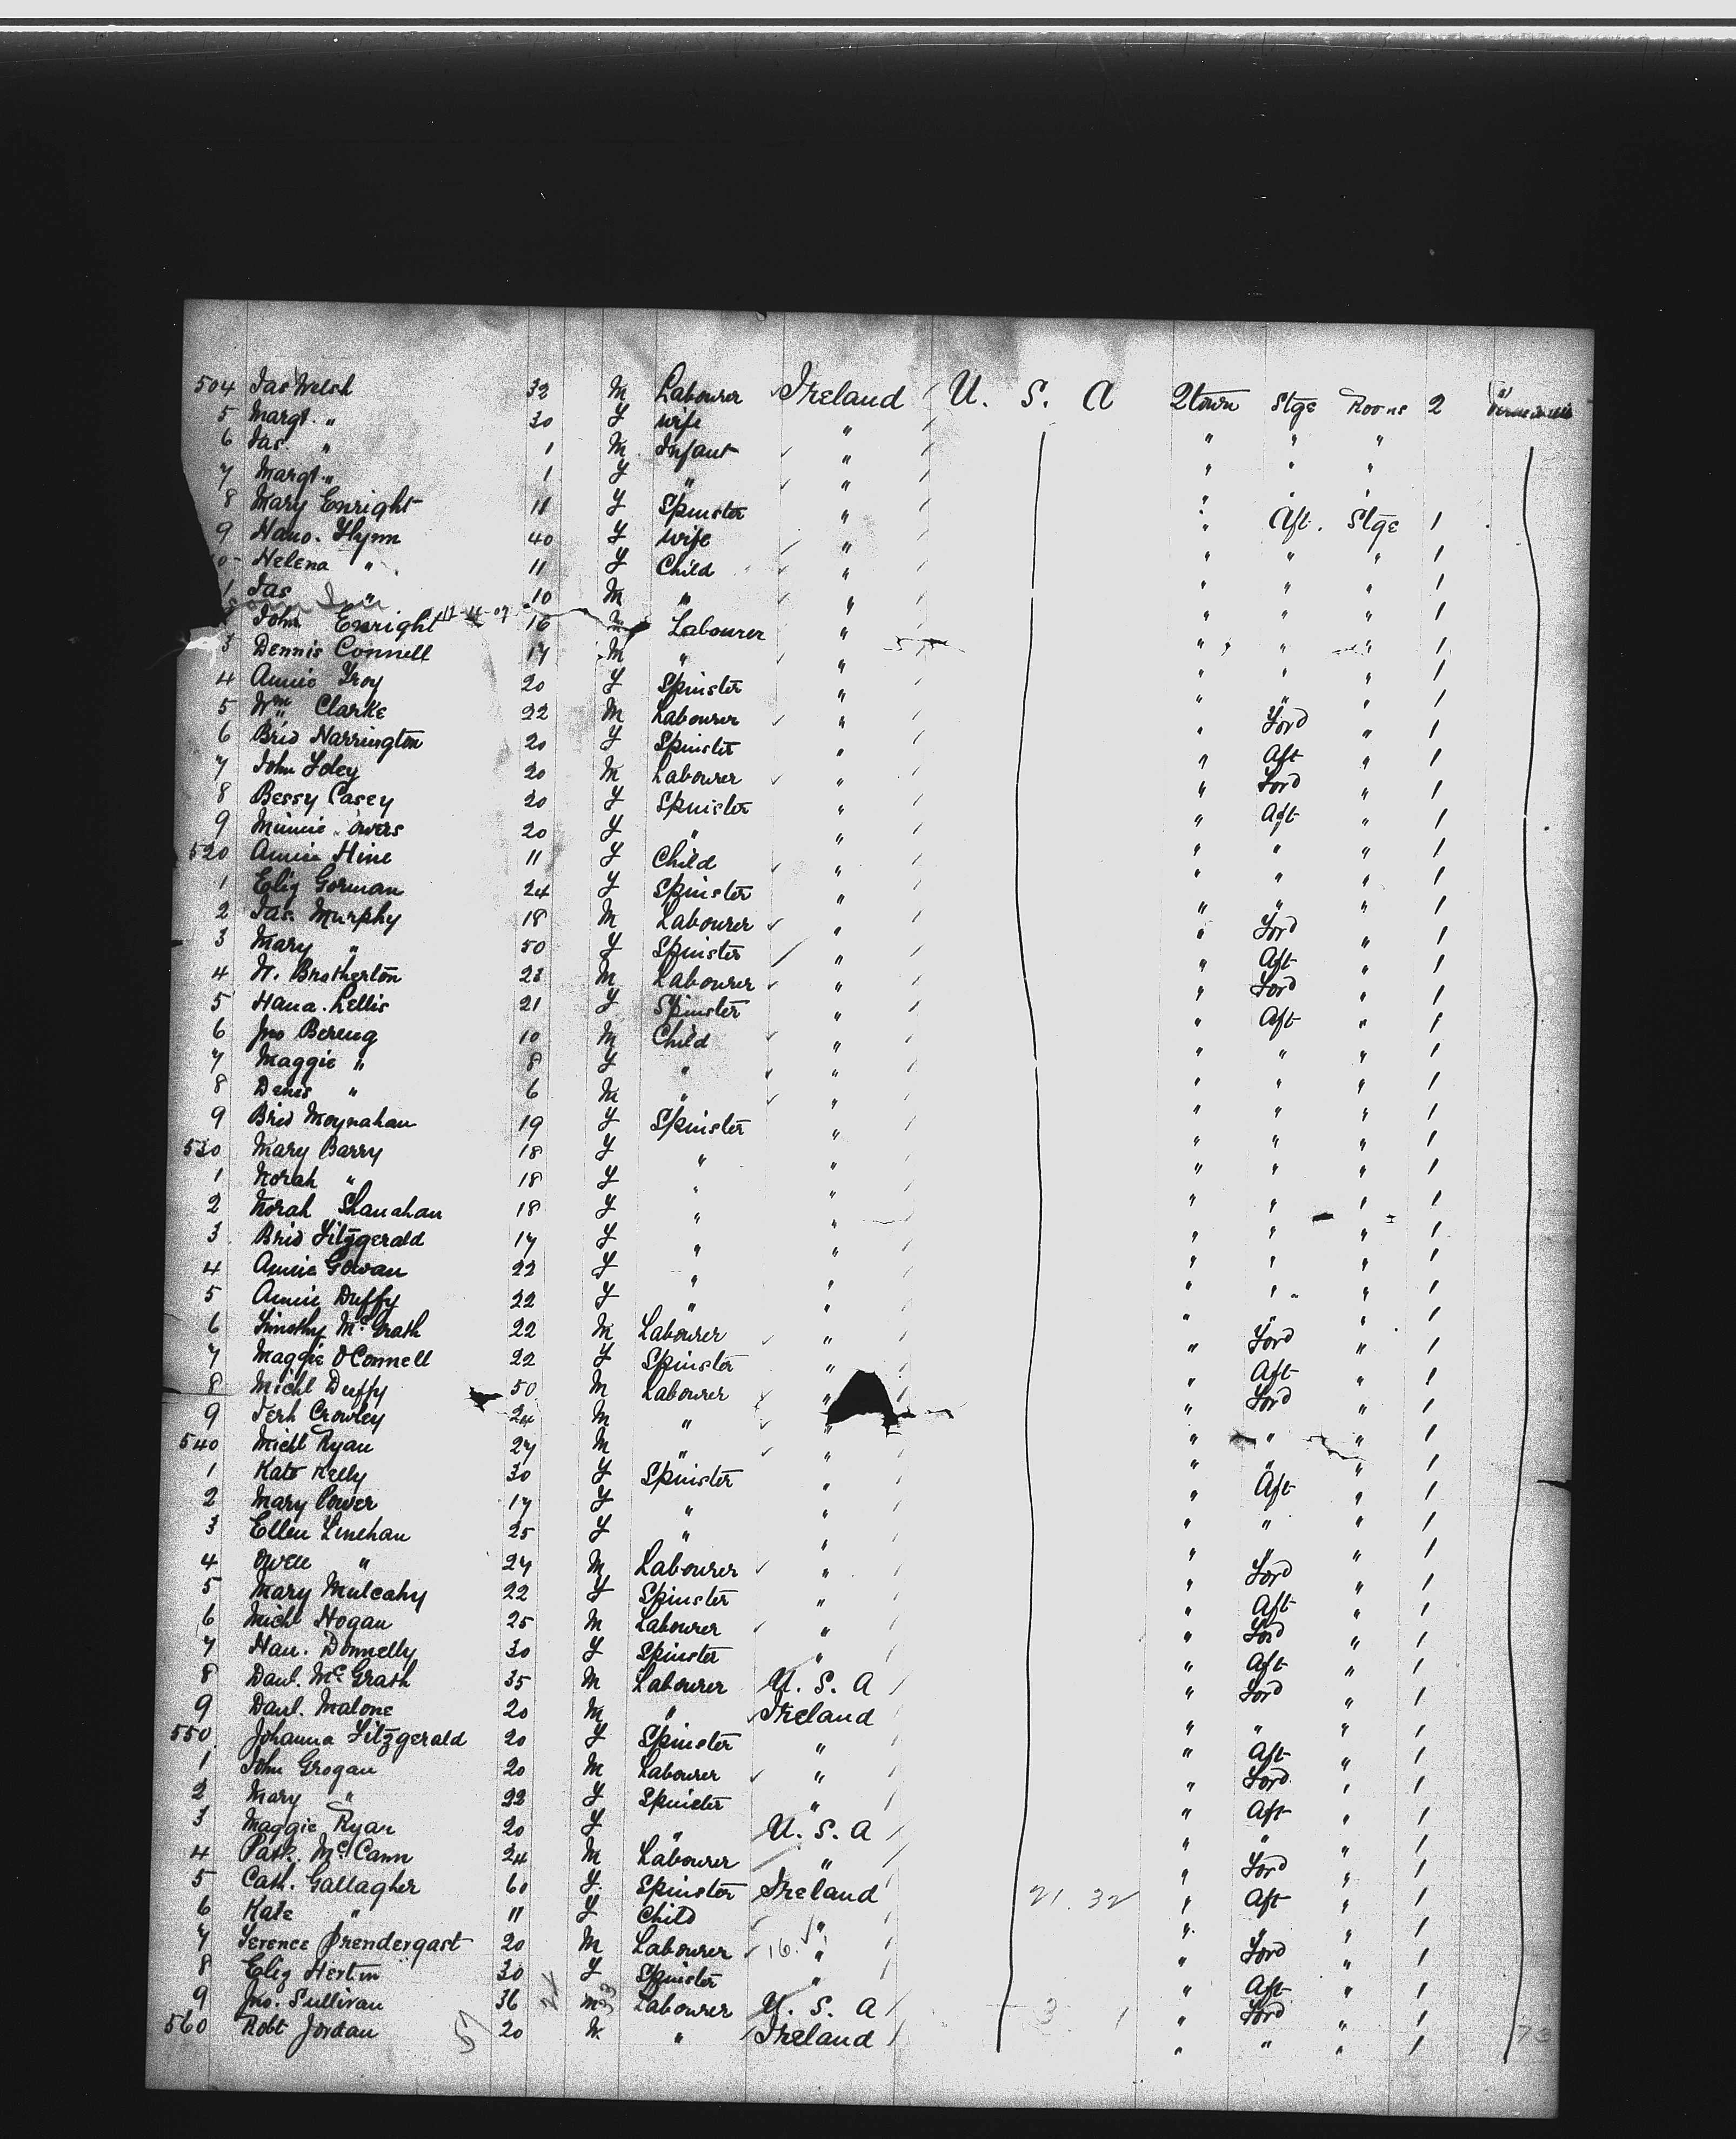 504 Jas Welsh 32 M Labourer Ireland U. S. A Qtown Stge Rooms 2
5 Margt. " 30 F wife " " " "
6 Jas. " 1 M Infant " " " "
7 Margt. " 1 F " " " " "
8 Mary Enright 11 F Spinster " " Aft. Stge 1
9 Hano. Flynn 40 F wife " " " " 1
0 Helena " 11 F Child " " " " 1
1 Jas " 10 M " " " " " 1
John Enright 16 M Labourer " " " " 1
3 Dennis Connell 17 M " " " " " 1
4 Annie Troy 20 F Spinster " " " " 1
5 Wm Clarke 22 M Labourer " " Ford " 1
6 Brid Harrington 20 F Spinster " " Aft " 1
7 John Foley 20 M Labourer " " Ford " 1
8 Bessy Casey 20 F Spinster " " Aft " 1
9 Minnie 20 F " " " " " 1
520 Annie Hine 11 F Child " " " " 1
1 Eliz Gorman 24 F Spinster " " " " 1
2 Jas. Murphy 18 M Labourer " " Ford " 1
3 Mary " 50 F Spinster " " Aft " 1
4 W. Brotherton 23 M Labourer " " Ford " 1
5 Hana. Lellis 21 F Spinster " " Aft " 1
6 Jno 10 M Child " " " " 1
7 Maggie " 8 F " " " " " 1
8 Denis " 6 M " " " " " 1
9 Brid Moynahan 19 F Spinster " " " " 1
530 Mary Barry 18 F " " " " " 1
1 Norah " 18 F " " " " " 1
2 Norah Shanahan 18 F " " " " " 1
3 Brid Fitzgerald 17 F " " " " " 1
4 Annie Gowan 22 F " " " " " 1
5 Annie Duffy 22 F " " " " " 1
6 Timothy McGrath 22 M Labourer " " Ford " 1
7 Maggie OConnell 22 F Spinster " " Aft " 1
8 Michl Duffy 50 M Labourer " " Ford " 1
9 Jerh Crowley 24 M " " " " " 1
540 Michl Ryan 27 M " " " " " 1
1 Kate Kelly 30 F Spinster " " Aft " 1
2 Mary Power 17 F " " " " " 1
3 Ellen Linehan 25 F " " " " " 1
4 Owen " 27 M Labourer " " Ford " 1
5 Mary Mulcahy 22 F Spinster " " Aft " 1
6 Michl Hogan 25 M Labourer " " Ford " 1
7 Han. Donnelly 30 F Spinster " " Aft " 1
8 Danl. McGrath 35 M Labourer U. S. A " Ford " 1
9 Danl. Malone 20 M " Ireland " " " 1
550 Johanna Fitzgerald 20 F Spinster " " Aft " 1
1 John Grogan 20 M Labourer " " Ford " 1
2 Mary " 22 F Spinster " " Aft " 1
3 Maggie Ryan 20 F " U. S. A " " " 1
4 Patk. McCann 24 M Labourer " " Ford " 1
5 Cath. Gallagher 60 F Spinster Ireland 21. 32 " Aft " 1
6 Kate " 11 F Child " " " " 1
7 Terence Prendergast 20 M Labourer 16. " " Ford " 1
8 Eliz 30 F Spinster " " Aft " 1
9 Jno. Sullivan 36 M Labourer U. S. A 3 1 " Ford " 1
560 Robt Jordan 20 M " Ireland " " " 1 73